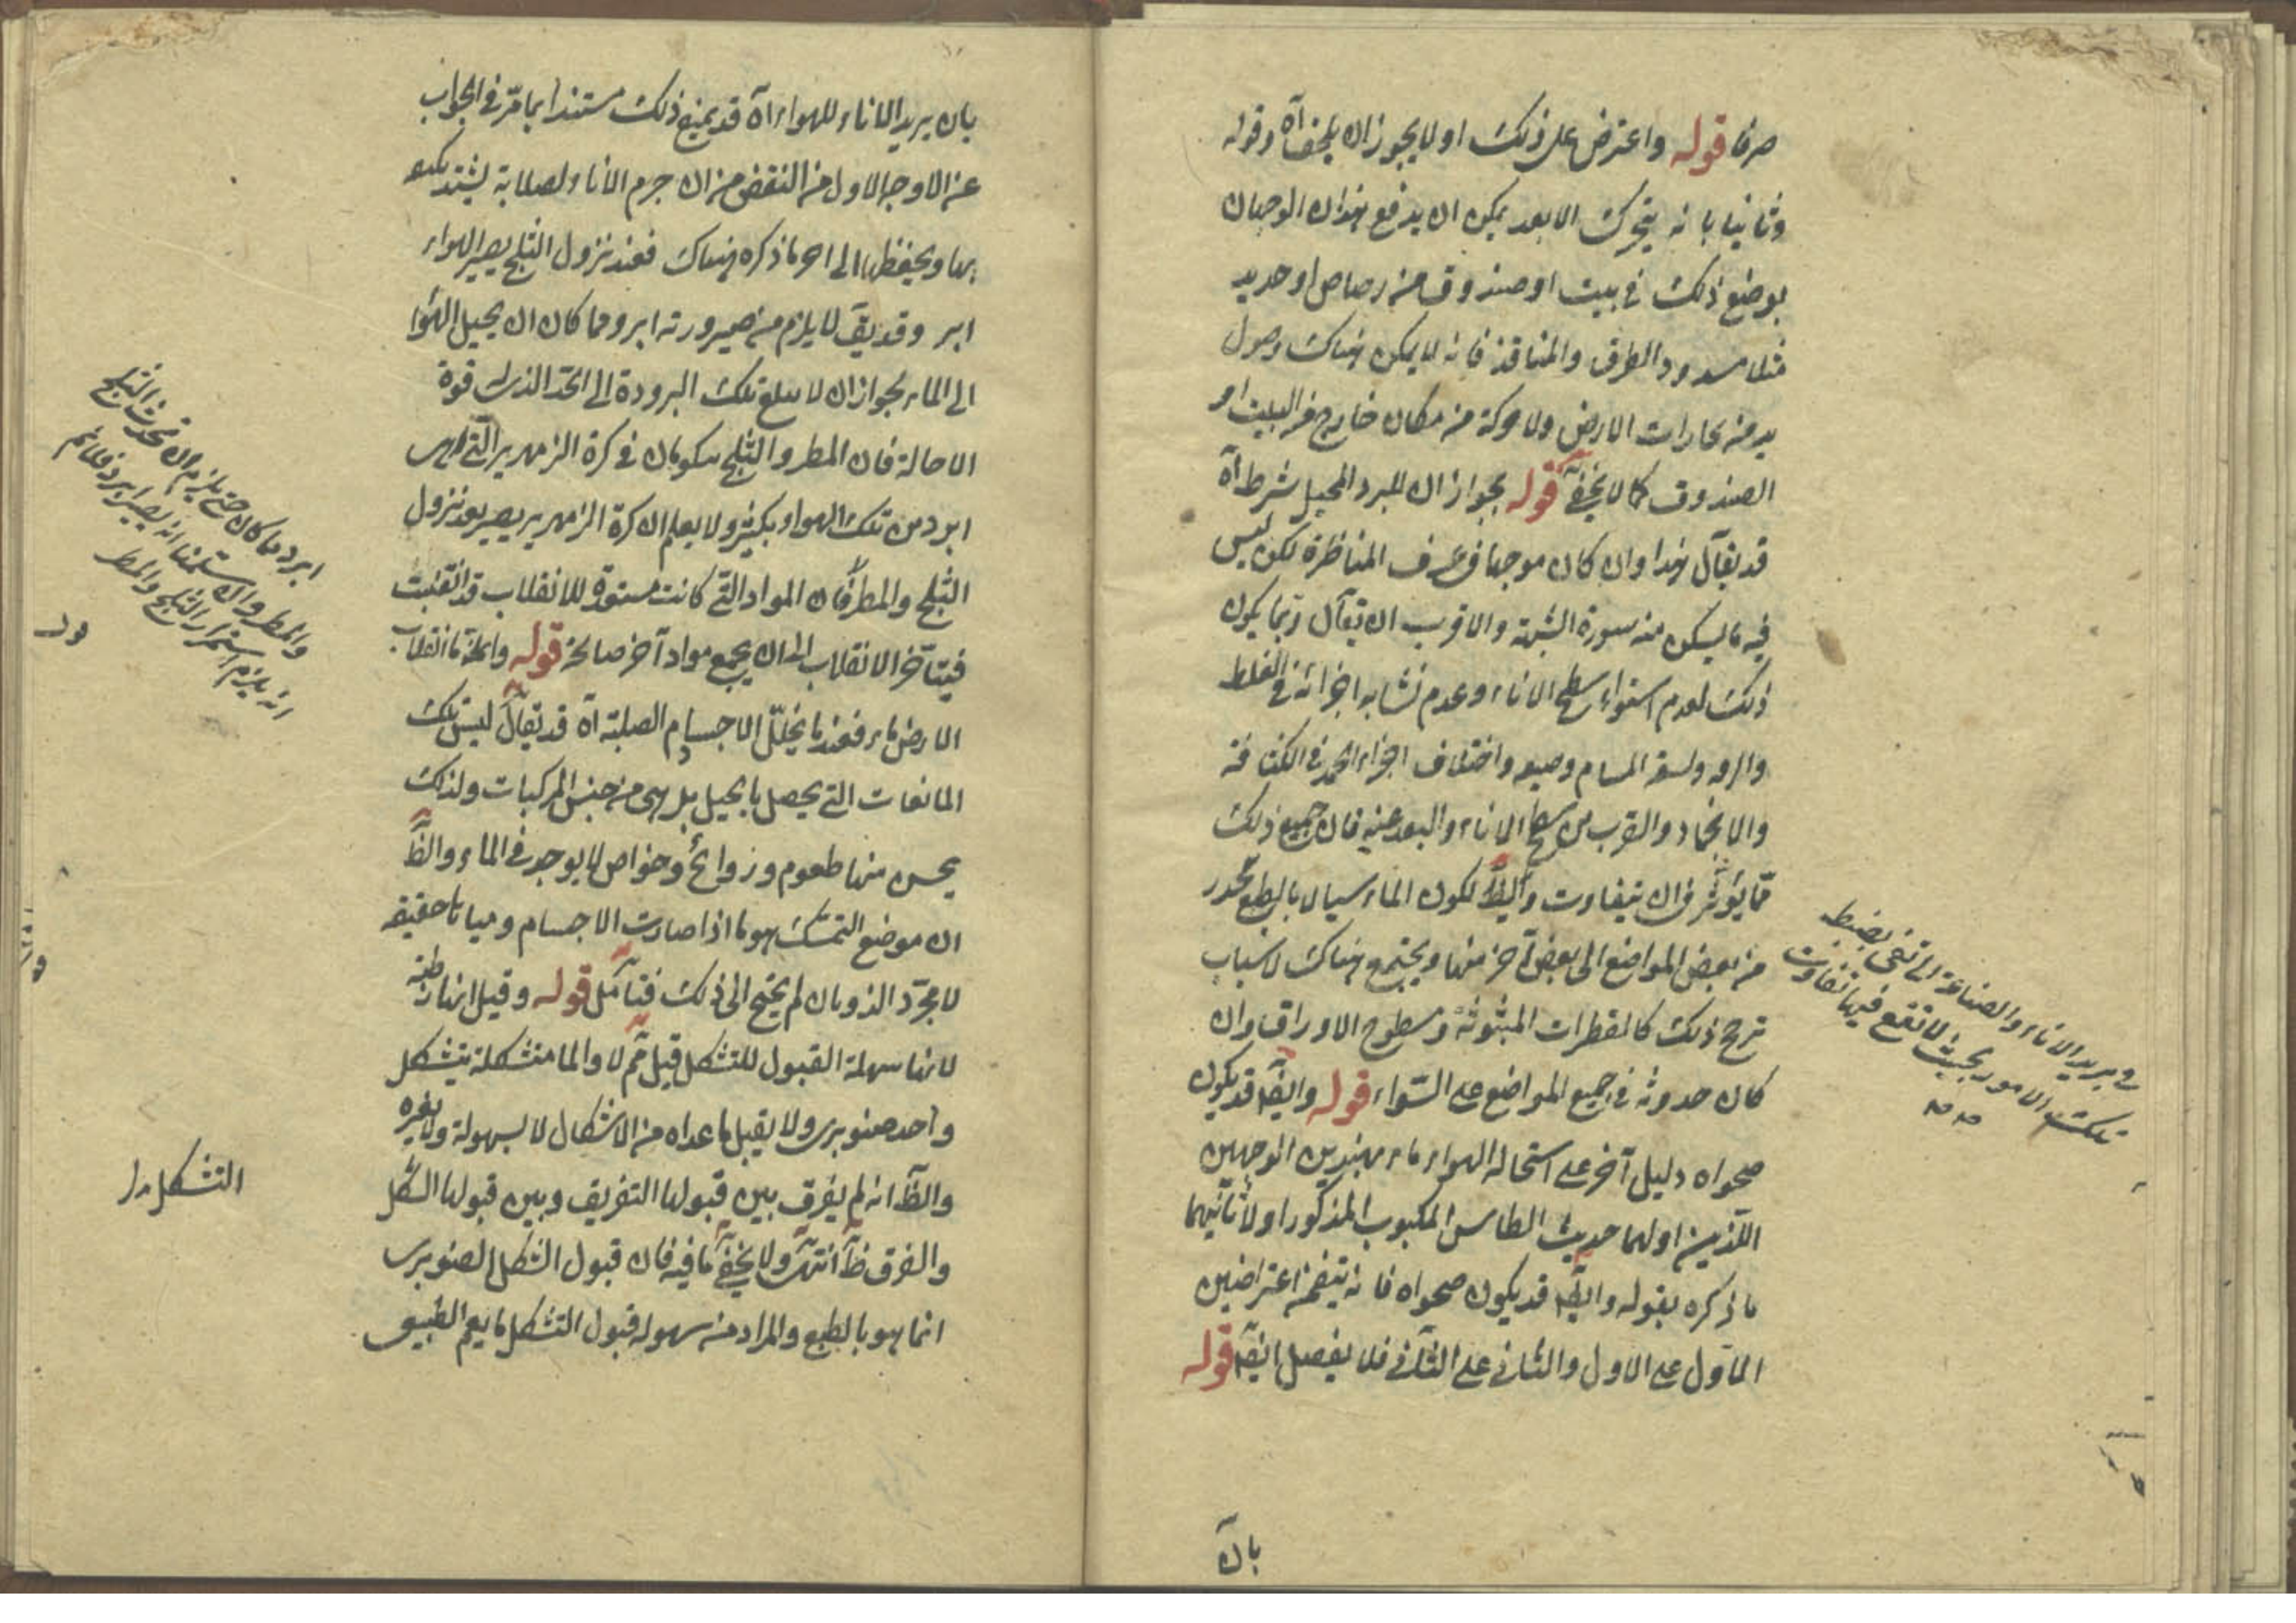 صرفا قوله واعترض على ذلك اولا يجوز ان يلحقه آه وقوله
وثانيا بانه يتحرك الا بعد يمكن ان يدفع هذان الوجهان
بوضع ذلك في بيت او صندوق من رصاص او حديد
مثلا مسدود الطرق والمنافذ فانه لا يمكن هناك وصول
بخارات الارض ولا حركة من مكان خارج من البيت او
الصندوق كما لا يخفى قوله بجواز ان للبرد المحيل شرط آه
قد يقال هذا وان كان موجها في عرف المناظرة لكن ليس
فيه ما يسكن منه سورة الشبهة والاقرب ان يقال ربما يكون
ذلك لعدم استواء سطح الاناء وعدم تشابه اجزائه في الغلظ
والرقة ولسعة المسام وضيقه واختلاف اجزاء الجمد في الكثافة
والانجماد والقرب من سطح الاناء والبعد عنه فان جميع ذلك
مما يؤثر في ان يتفاوت وايضا لكون الماء سيالا بالطبع تحدر
من بعض المواضع الى بعض آخر منها ويجتمع هناك لاسباب
ترجح ذلك كالقطرات المبثوثة في سطوح الاوراق وان
كان حدوثه في جميع المواضع على السواء قوله وايضا قد يكون
صحوا ه دليل آخر على استحالة الهواء ماء بهذين الوجهين
اللذين اولهما حديث الطاس المكبوب المذكور اولا ثانيهما
ما ذكره بقوله وايضا قد يكون صحوا ه فانه يتضمن اعتراضين
الاول على الاول والثاني على الثاني فلا يفصل ايضا قوله
بان
في تبريد الاناء والصناعة التي تفي بضبط
تلك الامور بحيث لا تقع فيها تفاوت
بان يريد الاناء للهواء آه قد يمنع ذلك مستندا بما مر في الجواب
عن الاوجه الاول من النقض من ان جرم الاناء لصلابته يشتد تكيفه
بها ويحفظها الى اخر ما ذكره هناك فعند نزول الثلج يصير الهواء
ابرد وقد يقال لا يلزم من صيرورته ابرد مما كان ان يحيل الهواء
الى الماء لجواز ان لا يبلغ تلك البرودة الى الحد الذي له قوة
الاحالة فان المطر والثلج يتكونان في كرة الزمهرير التي هي
ابرد من تلك الهواء بكثير ولا يعلم ان كرة الزمهرير يصير بعد نزول
الثلج والمطر فان المواد التي كانت مستعدة للانقلاب قد انقلبت
فيتأخر الانقلاب الى ان يجمع مواد آخر صالحة قوله واما انقلاب
الارض ماء فعندما يتحلل الاجسام الصلبة آه قد يقال ليس تلك
المائعات التي يحصل بالحيل بل هي من جنس المركبات ولذلك
يحس منها طعوم وروائح وخواص لا يوجد في الماء والظ
ان موضع التمسك هو ما اذا صارت الاجسام مياها حقيقة
لا مجرد الذوبان لم يحتج الى ذلك فتأمل قوله وقيل انها رطبة
لانها سهلة القبول للتشكل قيل ثم لا والما متشكلة بتشكل
واحد صنوبري ولا يقبل ما عداه من الاشكال لا بسهولة ولا بغيره
والظ انه لم يفرق بين قبولها التفريق وبين قبولها الشكل
والفرق ظ انتهى ولا يخفى ما فيه فان قبول الشكل الصنوبري
انما هو بالطبع والمراد منه سهولة قبول التشكل ما يعم الطبيعي
ابرد مما كان حتى يلزم ان يحدث الثلج
والمطر وان سلمنا انه يصير ابرد فلا نم
انه يلزم استمرار الثلج والمطر
التشكل